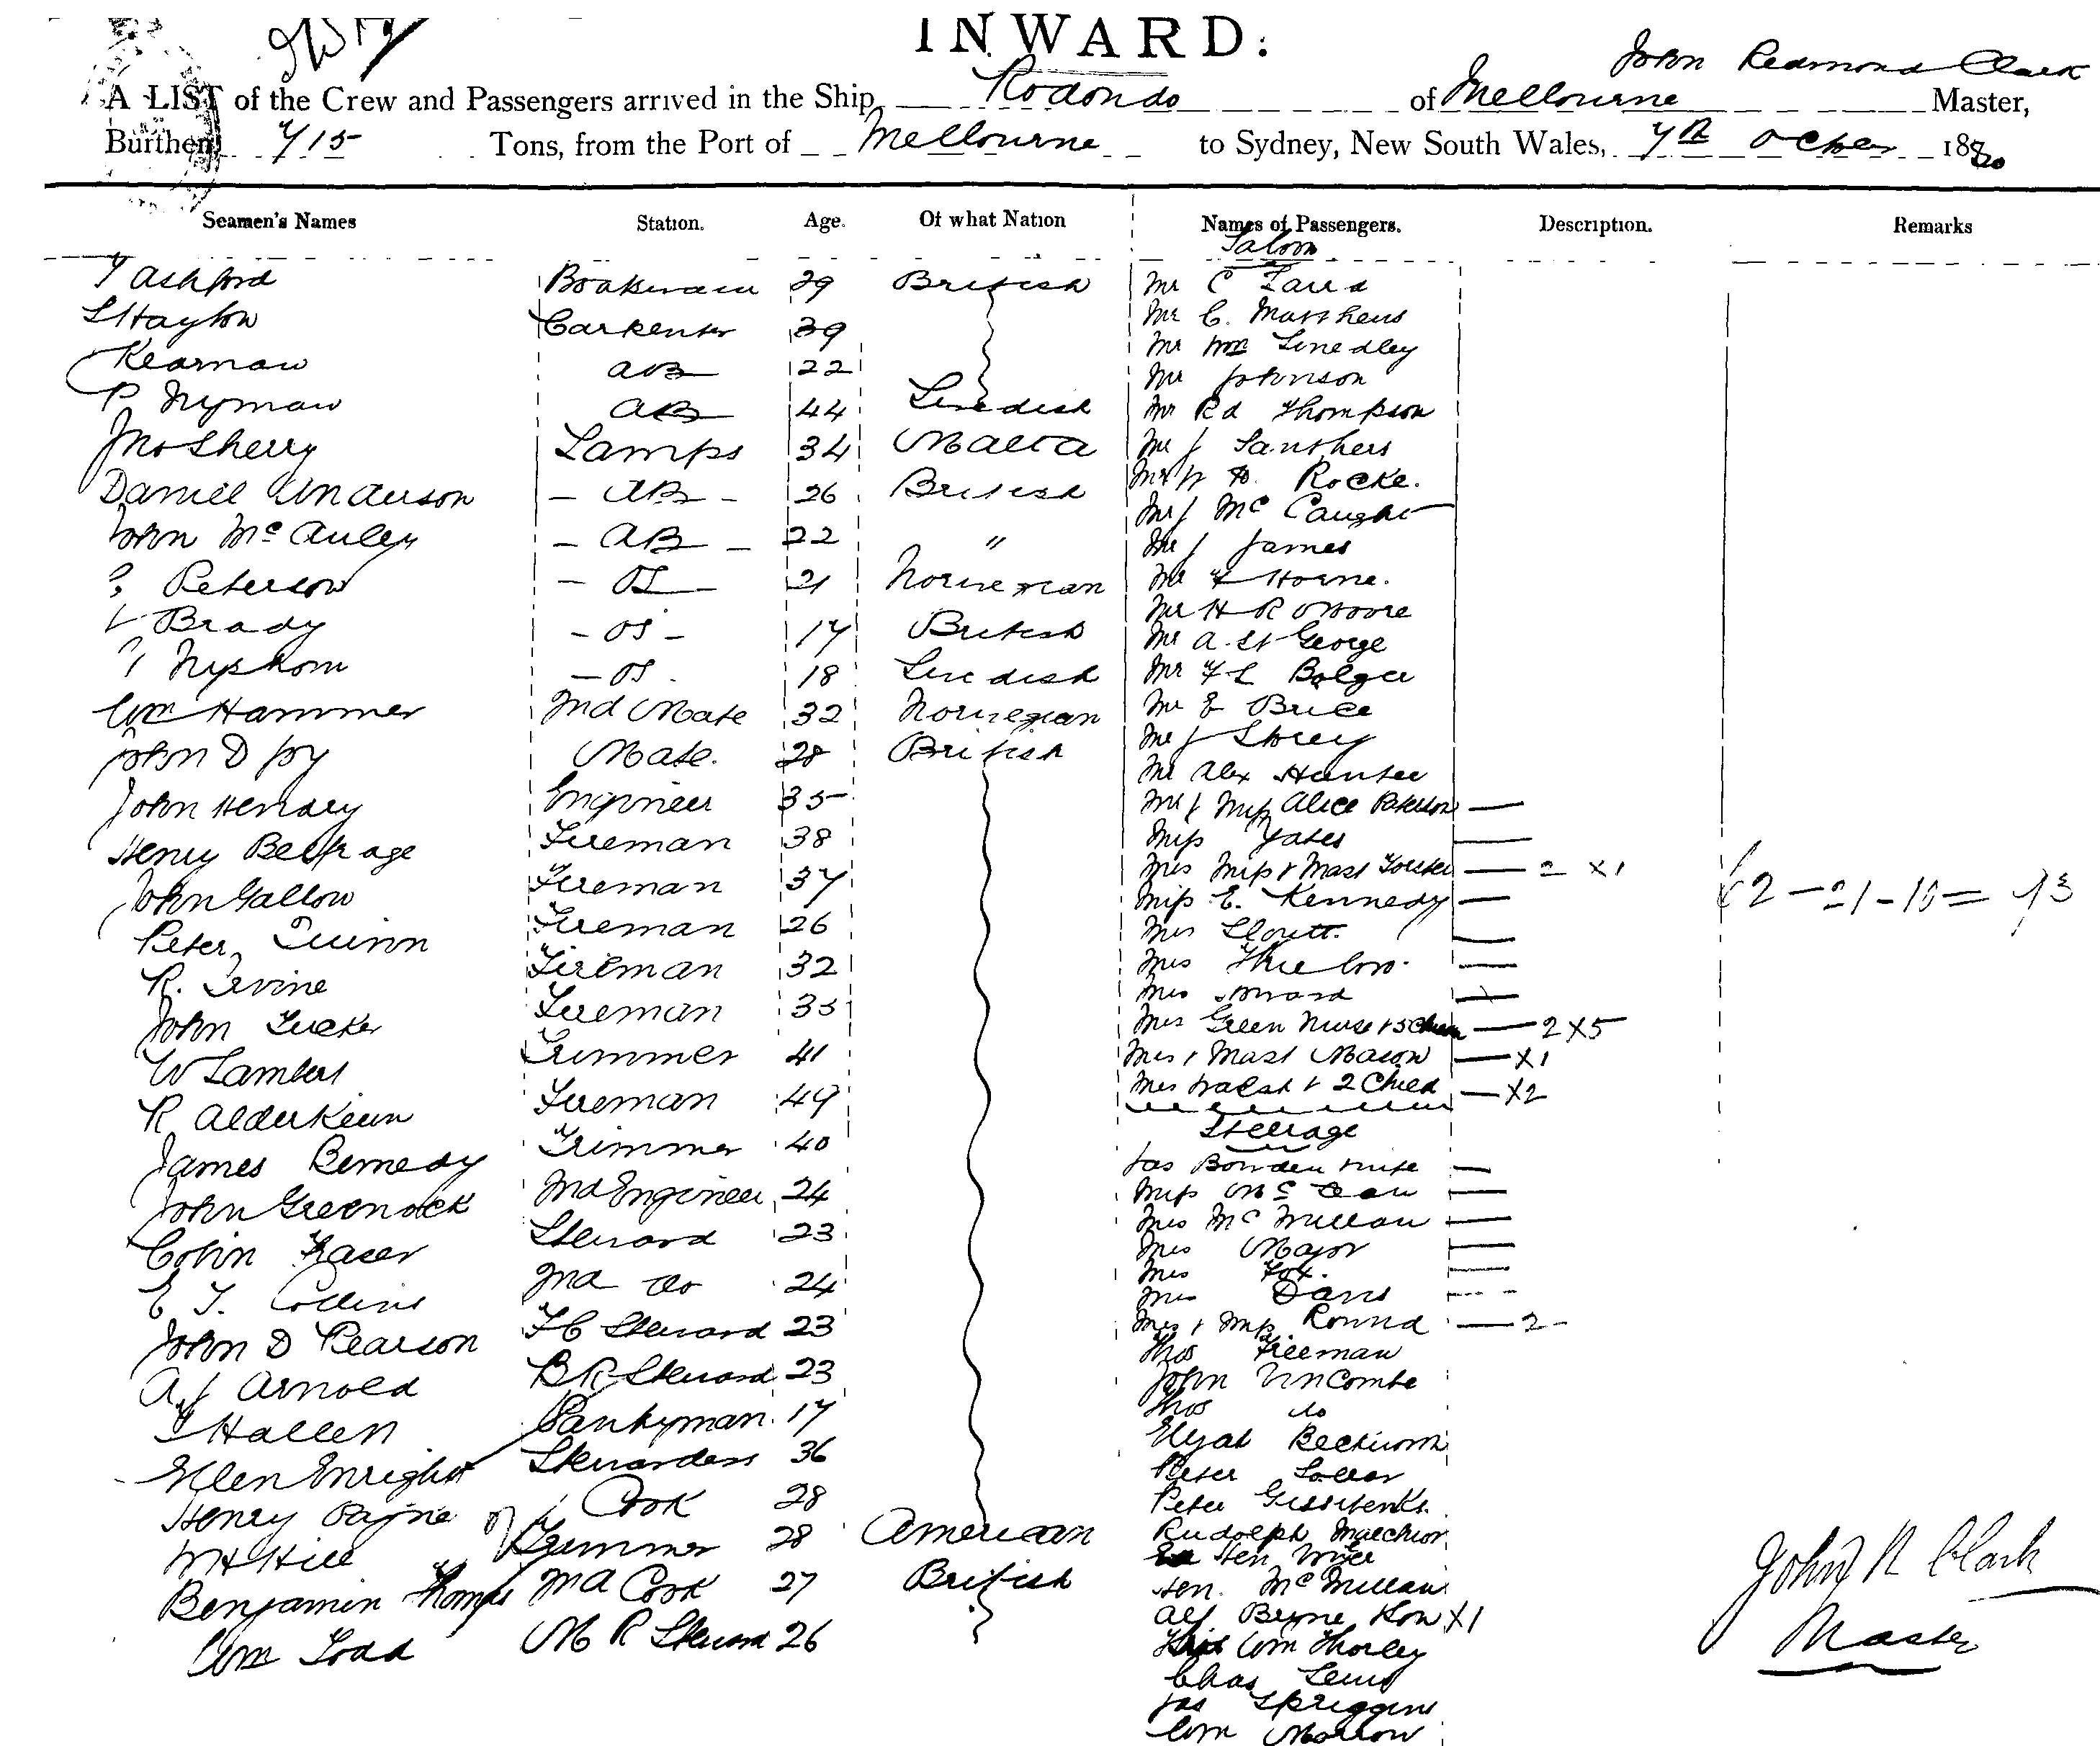 INWARD.
John Redmond Clark
A LIST of the Crew and Passengers arrived in the Ship Rodondo of Melbourne Master,
Burthen 715 Tons, from the Port of Melbourne to Sydney, New South Wales, 7th October 1880
Seamen's Names Station. Age. Of what Nation Names of Passengers. Description. Remarks
Saloon
T Ashford Boatswain 29 British Mr C
S Hayton Carpenter 39 Mr C. Matthews
Mr Wm Smedley
Kearnaw AB 22 Mr Johnson
P Nyman AB 44 Swedish Mr Rd Thompson
Jno Sherry Lamps 34 Malta Mr J
Rocke.
Daniel Anderson AB 26 British Mr J McCaugh
John McAuley AB 22 " Mr J James
Peterson OS 21 Norwegian Mr F Horne.
Mr H R Moore
Brady OS 17 British Mr A. St George
OS 18 Swedish Mr F L Bolger
Wm Hammer 2nd Mate 32 Norwegian Mr E Brice
John D Joy Mate. 28 British Mr J Storey
Mr Alex Hunter
John Hendry Engineer 35 Mr & Miss Alice Paterson
Henry Beltrage Fireman 38 Miss Yates
John Gallow Fireman 37 Mrs Miss & Mast 2 X1
Miss E. Kennedy 62 - 21 - 10 = 93
Peter Quinn Fireman 26 Mrs
R. Irvine Fireman 32 Mrs
John Tucker Fireman 35 Mrs
Mrs Green Nurse & 5 Chn 2 X5
W Lambert Trimmer 41 Mrs & Mast Mason X1
R Fireman 49 Mrs Walsh & 2 Child X2
Steerage
James Remedy Trimmer 40 Jas Bowden wife
John Greenock 2nd Engineer 24 Miss McLean
Mrs McMillan
Colin Fraser Steward 23 Mrs Major
Mrs Fox.
E T. Collins 2nd do 24 Mrs Davis
John D Pearson FC Steward 23 Mrs & Miss Round 2
Thos Freeman
A. J Arnold BR Steward 23 John Uncombe
Thos do
T Hallen Pantryman 17 Elijah
Ellen Enright Stewardess 36 Peter
Henry Payne Cook 28 Peter
W H Hill Trimmer 28 American Rudolph
Hen
Benjamin Thomps 2nd Cook 27 British Hen. McMillan
Alf Byrne & Son X1
Wm Todd M R Steward 26 Wm Thorley
Chas Lewis
Jas Spriggins
Wm Morrow
John R Clark
Master